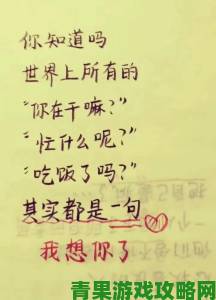 你知道吗
世界上所有的
“你在干嘛？”
“忙什么呢？”
“吃饭了吗？”
其实都是一句
我想你了
青果游戏攻略网